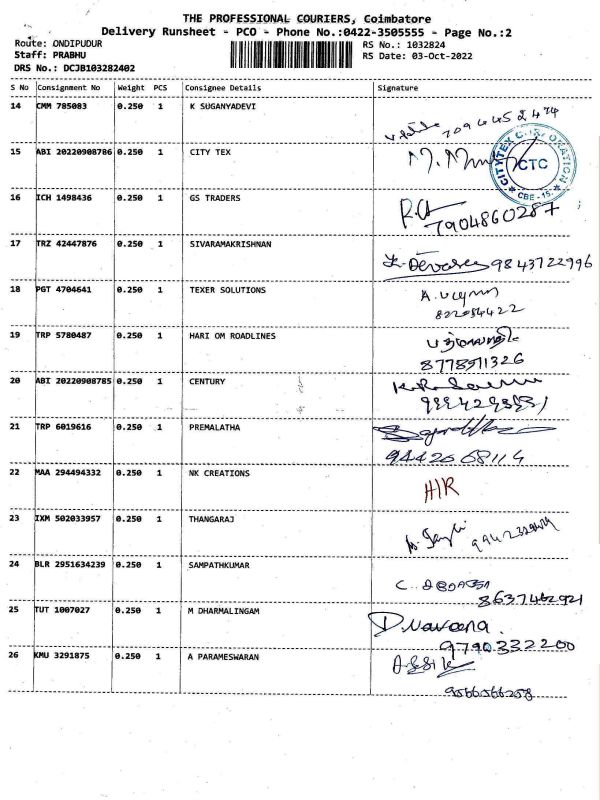 THE PROFESSIONAL COURIERS, Coimbatore
Delivery Runsheet - PCO - Phone No.:0422-3505555 - Page No.:2
Route: ONDIPUDUR
RS No.: 1032824
Staff: PRABHU
RS Date: 03-Oct-2022
DRS No.: DCJB103282402
S No Consignment No Weight PCS Consignee Details Signature
14 CMM 785083 0.250 1 K SUGANYADEVI
7094452474
15 ABI 20220908786 0.250 1 CITY TEX
CITYTEX CORPORATION CTC CBE-15
16 ICH 1498436 0.250 1 GS TRADERS
7904860287
17 TRZ 42447876 0.250 1 SIVARAMAKRISHNAN
9843722996
18 PGT 4704641 0.250 1 TEXER SOLUTIONS
19 TRP 5780487 0.250 1 HARI OM ROADLINES
8778971326
20 ABI 20220908785 0.250 1 CENTURY
21 TRP 6019616 0.250 1 PREMALATHA
9442668114
22 MAA 294494332 0.250 1 NK CREATIONS
H/R
23 IXM 502033957 0.250 1 THANGARAJ
24 BLR 2951634239 0.250 1 SAMPATHKUMAR
8637462921
25 TUT 1007027 0.250 1 M DHARMALINGAM
D.Naveena.
9790332200
26 KMU 3291875 0.250 1 A PARAMESWARAN
9566566258